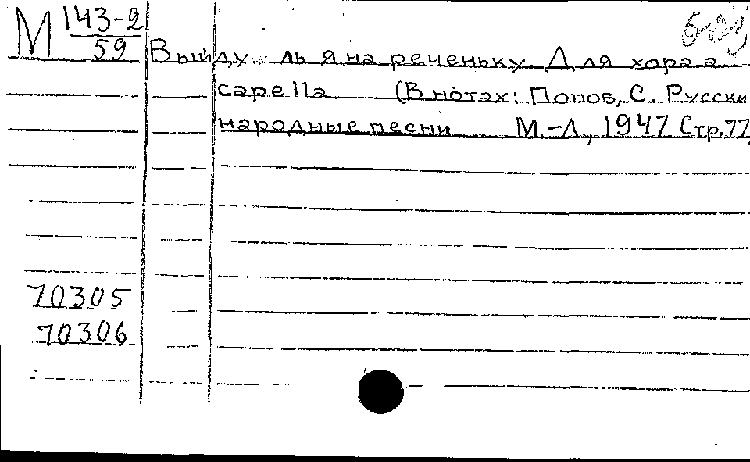 М 143-2
59
Выйду ль я на реченьку. Для хора а
capella (В нотах: Попов, С. Русски
народные песни М.-Л, 1947 Стр.77,
70305
70306